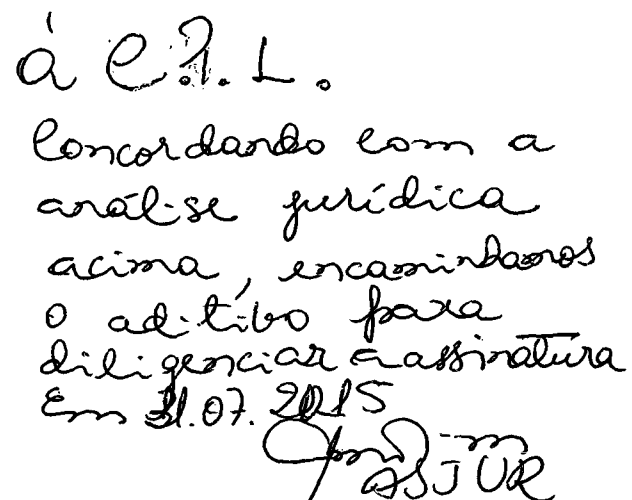 À C.P.L.
Concordando com a
análise jurídica
acima, encaminhamos
o aditivo para
diligenciar a assinatura
Em 31.07.2015
ASJUR